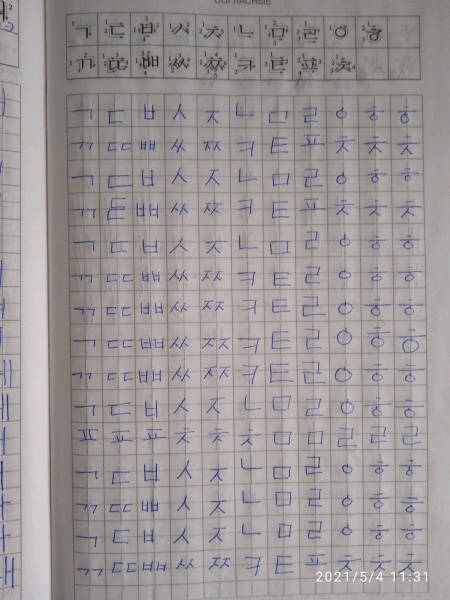 СОГЛАСНЫЕ
ㄱ ㄷ ㅂ ㅅ ㅈ ㄴ ㅁ ㄹ ㅇ ㅎ
ㄲ ㄸ ㅃ ㅆ ㅉ ㅋ ㅌ ㅍ ㅊ
ㄱ ㄷ ㅂ ㅅ ㅈ ㄴ ㅁ ㄹ ㅇ ㅎ ㅎ
ㄲ ㄸ ㅃ ㅆ ㅉ ㅋ ㅌ ㅍ ㅊ ㅊ ㅊ
ㄱ ㄷ ㅂ ㅅ ㅈ ㄴ ㅁ ㄹ ㅇ ㅎ ㅎ
ㄲ ㅃ ㅆ ㅉ ㅋ ㅌ ㅍ ㅊ ㅊ ㅊ
ㄱ ㄷ ㅂ ㅅ ㅈ ㄴ ㅁ ㄹ ㅇ ㅎ ㅎ
ㄲ ㄸ ㅃ ㅆ ㅉ ㅋ ㅌ ㄹ ㅇ ㅎ ㅎ
ㄲ ㄸ ㅃ ㅆ ㅉ ㅋ ㅌ ㄹ ㅇ ㅎ ㅎ
ㄱ ㄸ ㅃ ㅆ ㅉ ㅋ ㅌ ㄹ ㅇ ㅎ ㅎ
ㄲ ㄸ ㅃ ㅆ ㅉ ㅋ ㅌ ㄹ ㅇ ㅎ ㅎ
ㄱ ㄷ ㅂ ㅅ ㅈ ㄴ ㅁ ㄹ ㅇ ㅎ ㅎ
ㅍ ㅍ ㅍ ㅊ ㅊ ㅊ ㅁ ㅁ ㄹ ㄹ ㄹ
ㄱ ㄷ ㅂ ㅅ ㅈ ㄴ ㅁ ㄹ ㅇ ㅎ ㅎ
ㄲ ㄸ ㅃ ㅅ ㅈ ㄴ ㅁ ㄹ ㅇ ㅎ ㅎ
ㄱ ㄷ ㅂ ㅅ ㅈ ㄴ ㅁ ㄹ ㅇ ㅎ ㅎ
ㄲ ㄸ ㅃ ㅆ ㅉ ㅋ ㅌ ㅍ ㅊ ㅊ ㅊ
2021/5/4 11:31